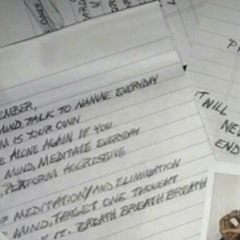 EMBER,
MIND, TALK TO NANNAE EVERYDAY
M IS YOUR OWN
E ALONE AGAIN IF YOU
MIND, MEDITATE EVERYDAY
PERFORM
MEDITATION/MIND ELIMINATION
MIND, TARGET ONE THOUGHT
IT. BREATH BREATH BREATH
P
T WILL
NE
END